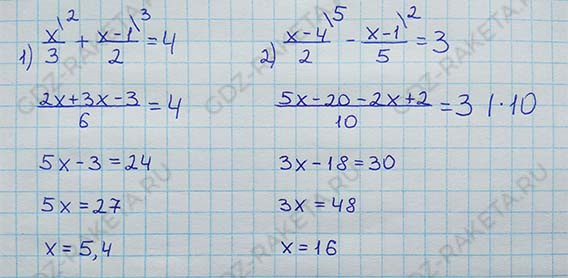 1) x\²/3 + x-1\³/2 = 4
2x+3x-3/6 = 4
5x-3=24
5x=27
x=5,4
2) x-4\⁵/2 - x-1\²/5 = 3
5x-20-2x+2/10 = 3 |·10
3x-18=30
3x=48
x=16
GDZ-RAKETA.RU